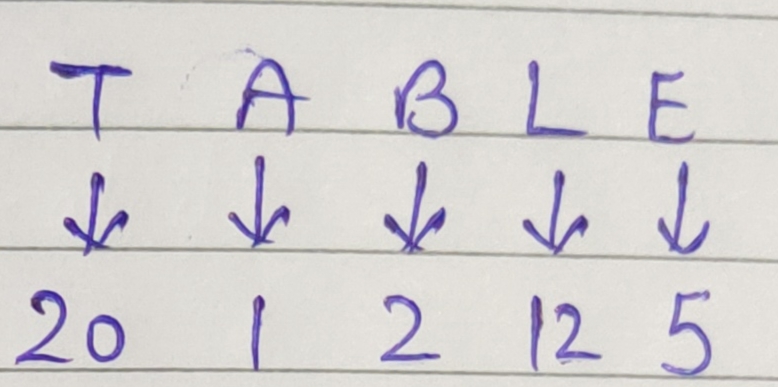 T A B L E
↓ ↓ ↓ ↓ ↓
20 1 2 12 5